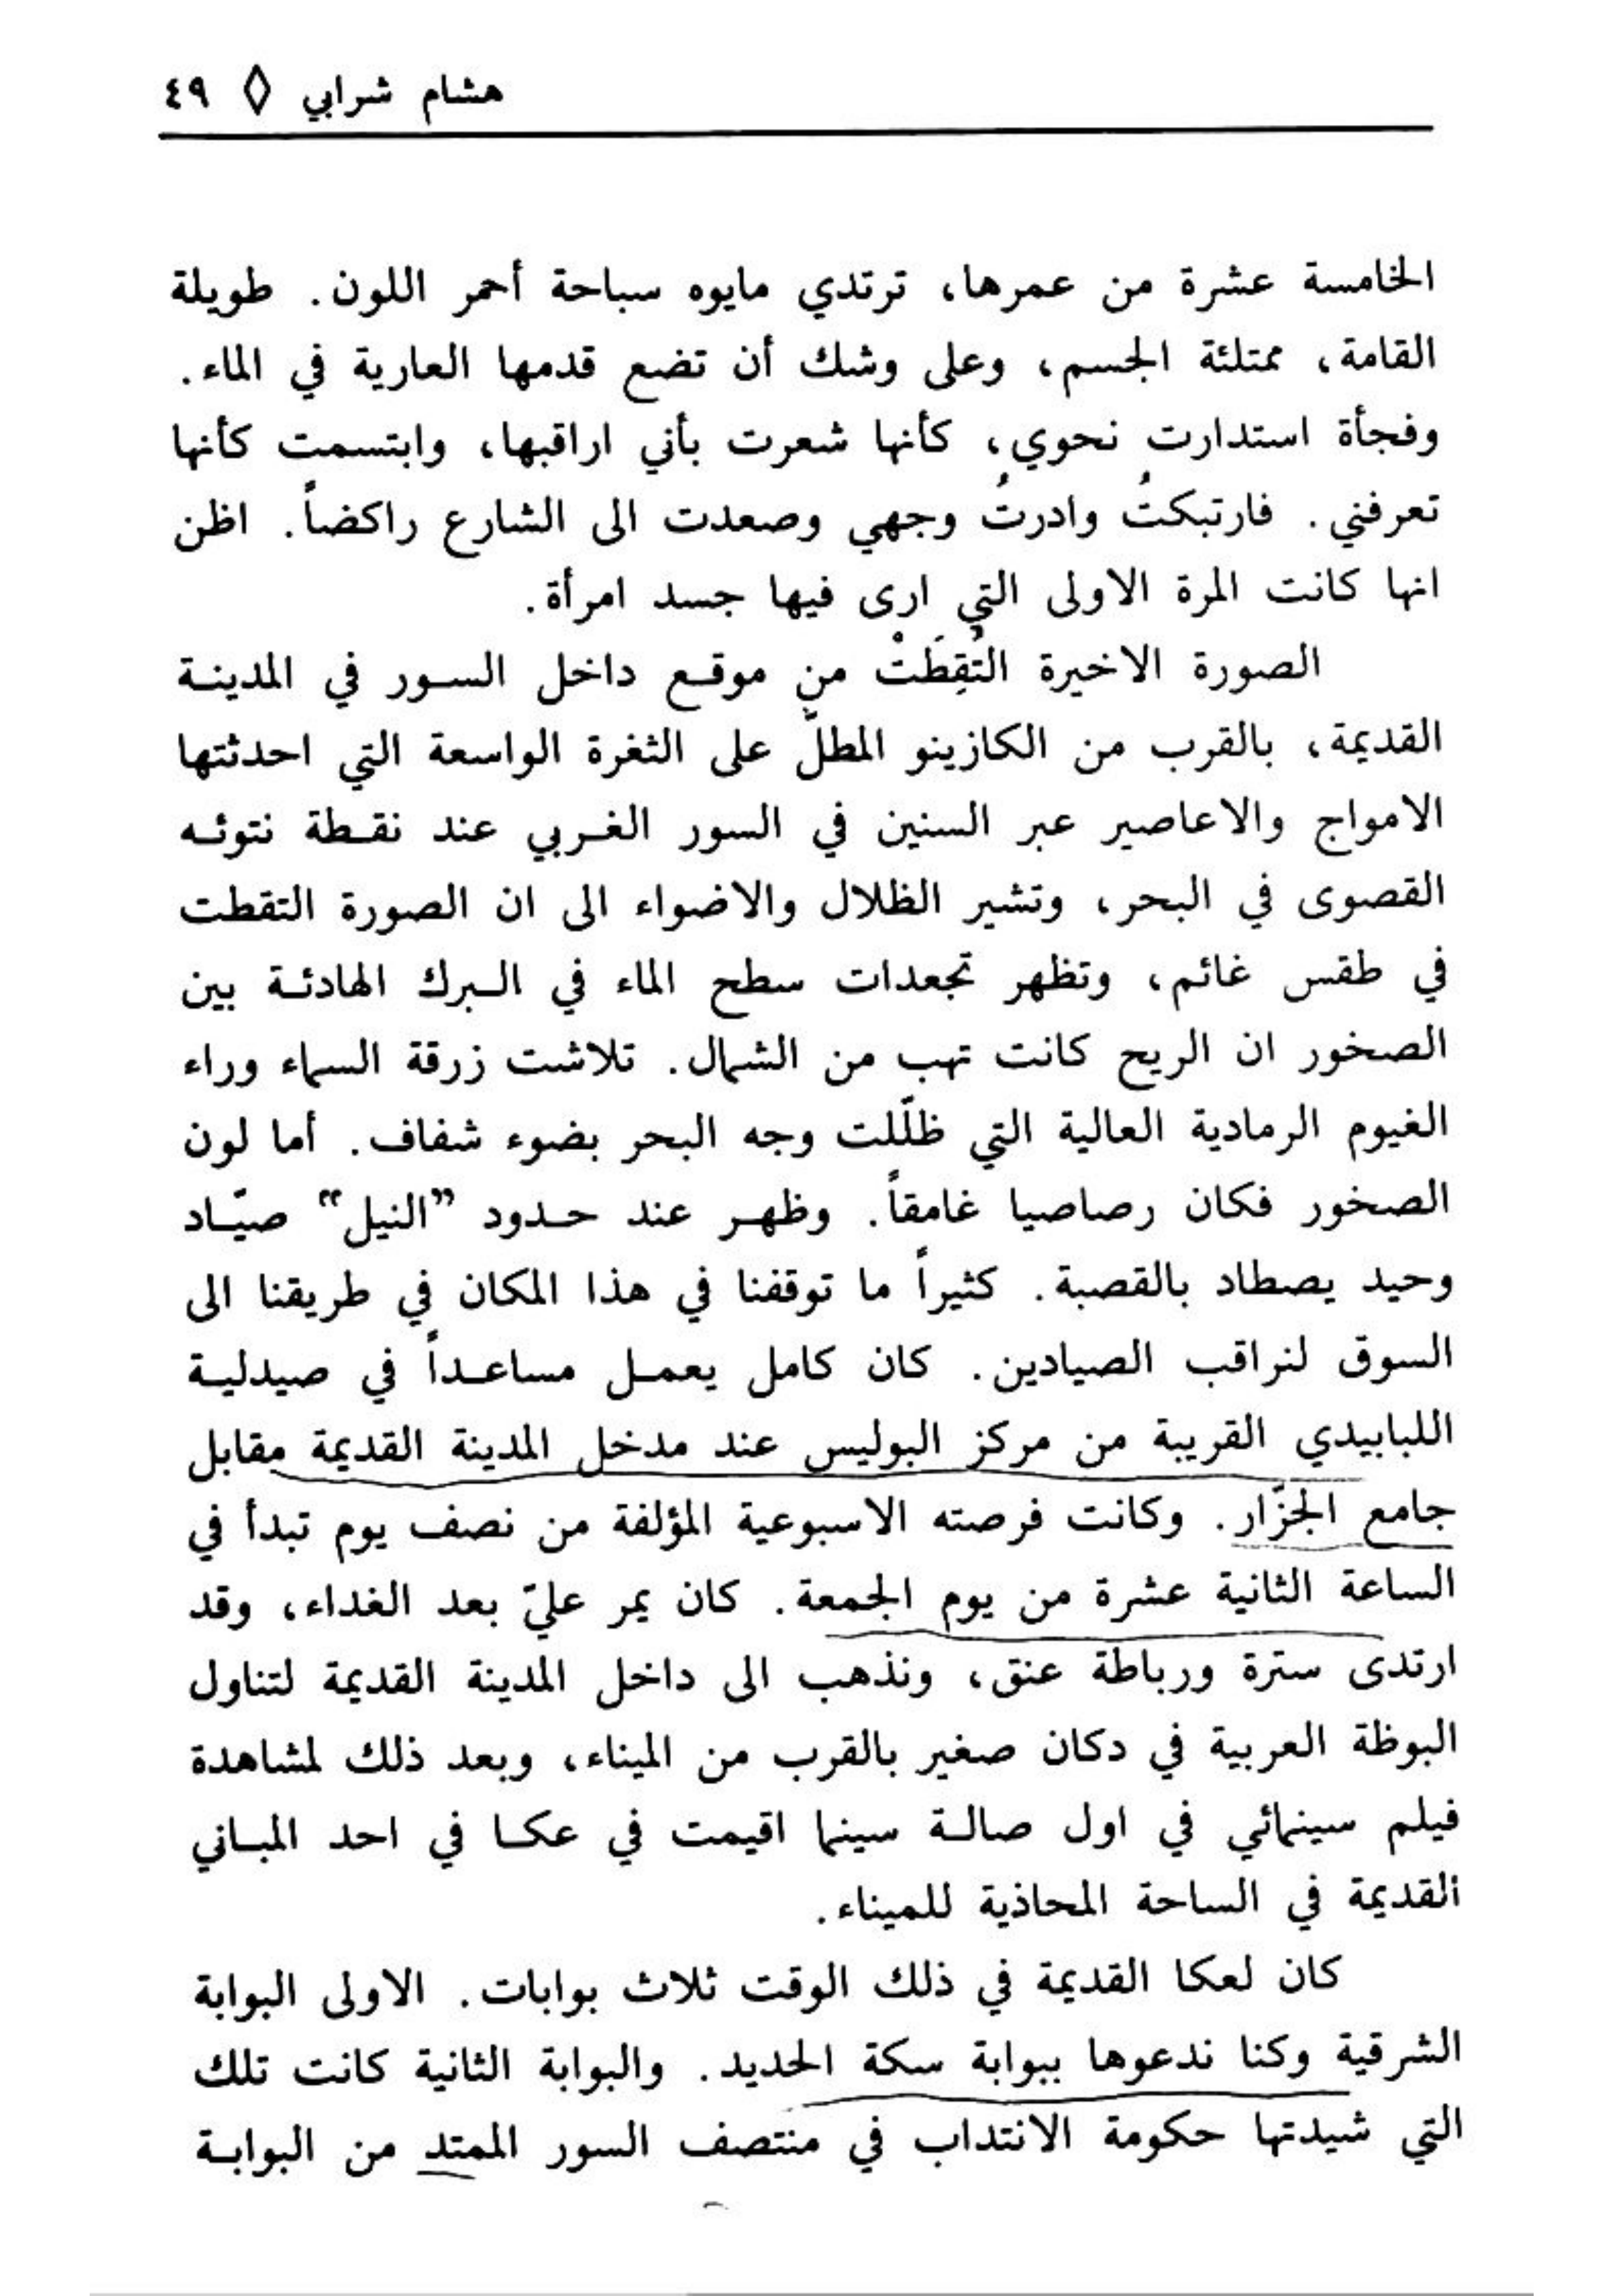 هشام شرابي ◊ ٤٩
الخامسة عشرة من عمرها، ترتدي مايوه سباحة أحمر اللون. طويلة
القامة، ممتلئة الجسم، وعلى وشك أن تضع قدمها العارية في الماء.
وفجأة استدارت نحوي، كأنها شعرت بأني اراقبها، وابتسمت كأنها
تعرفني. فارتبكتُ وادرتُ وجهي وصعدت الى الشارع راكضاً. اظن
انها كانت المرة الاولى التي ارى فيها جسد امرأة.
الصورة الاخيرة التُقِطَتْ من موقع داخل السور في المدينة
القديمة، بالقرب من الكازينو المطلّ على الثغرة الواسعة التي احدثتها
الامواج والاعاصير عبر السنين في السور الغربي عند نقطة نتوئه
القصوى في البحر، وتشير الظلال والاضواء الى ان الصورة التقطت
في طقس غائم، وتظهر تجعدات سطح الماء في البرك الهادئة بين
الصخور ان الريح كانت تهب من الشمال. تلاشت زرقة السماء وراء
الغيوم الرمادية العالية التي ظلّلت وجه البحر بضوء شفاف. أما لون
الصخور فكان رصاصيا غامقاً. وظهر عند حدود "النيل" صيّاد
وحيد يصطاد بالقصبة. كثيراً ما توقفنا في هذا المكان في طريقنا الى
السوق لنراقب الصيادين. كان كامل يعمل مساعداً في صيدلية
اللبابيدي القريبة من مركز البوليس عند مدخل المدينة القديمة مقابل
جامع الجزّار. وكانت فرصته الاسبوعية المؤلفة من نصف يوم تبدأ في
الساعة الثانية عشرة من يوم الجمعة. كان يمر عليّ بعد الغداء، وقد
ارتدى سترة ورباطة عنق، ونذهب الى داخل المدينة القديمة لتناول
البوظة العربية في دكان صغير بالقرب من الميناء، وبعد ذلك لمشاهدة
فيلم سينمائي في اول صالة سينما اقيمت في عكا في احد المباني
القديمة في الساحة المحاذية للميناء.
كان لعكا القديمة في ذلك الوقت ثلاث بوابات. الاولى البوابة
الشرقية وكنا ندعوها ببوابة سكة الحديد. والبوابة الثانية كانت تلك
التي شيدتها حكومة الانتداب في منتصف السور الممتد من البوابة